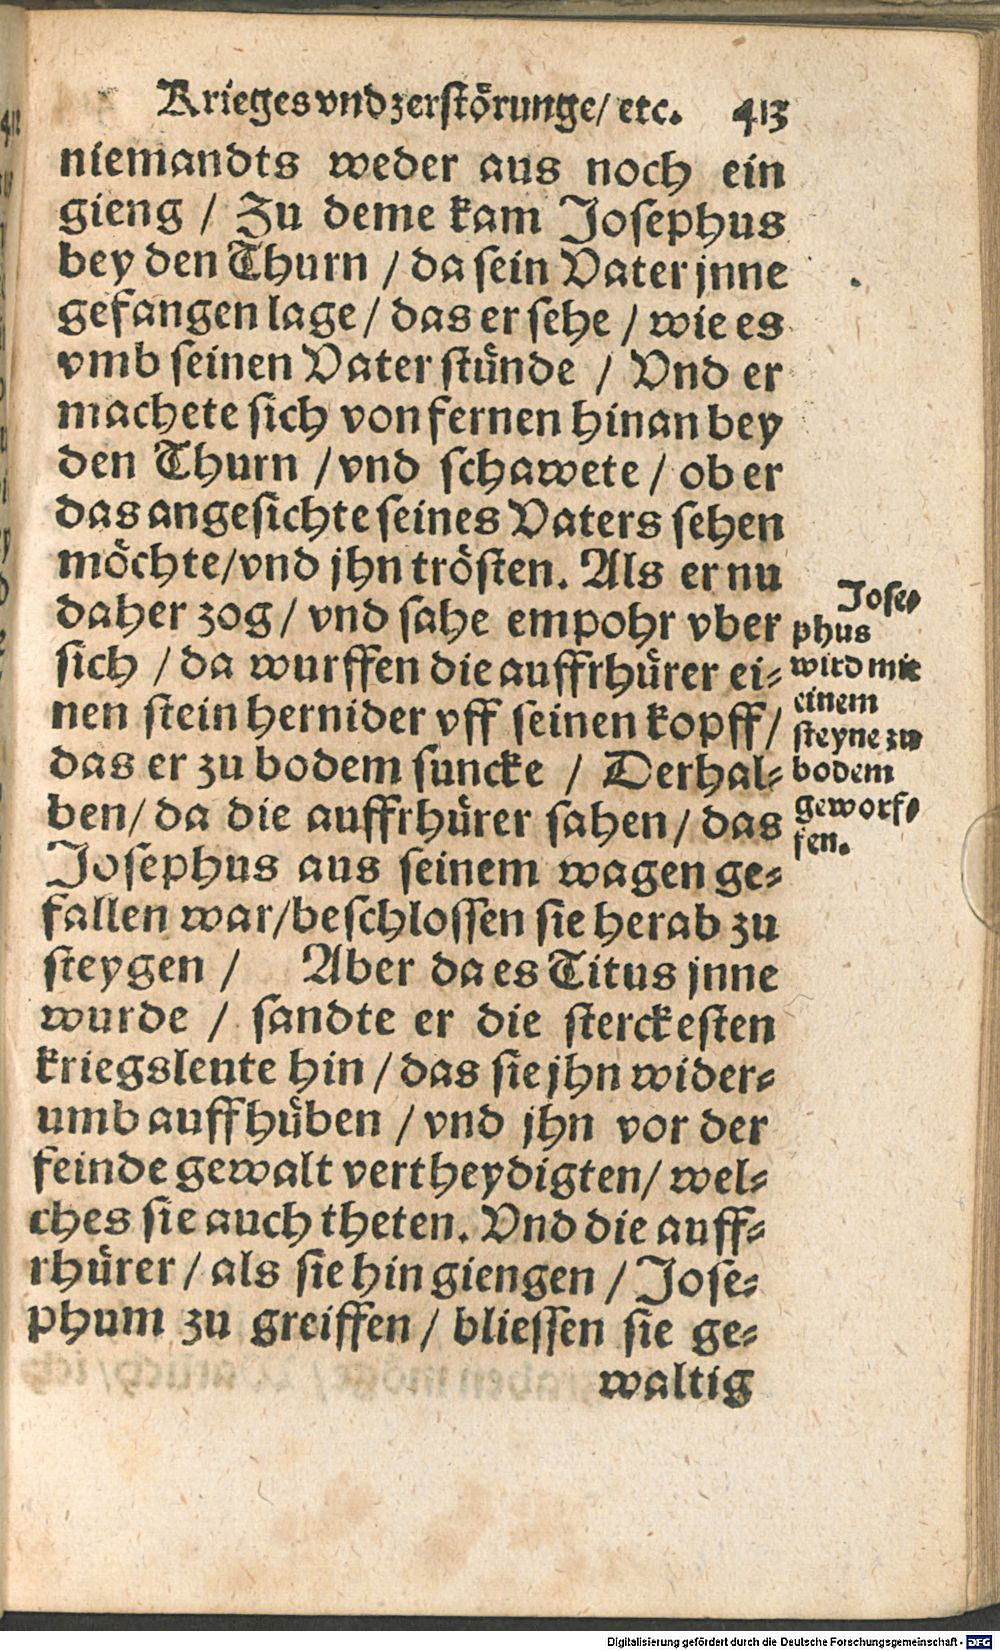 Krieges vnd zerstörunge/ etc. 413
niemandts weder aus noch ein
gieng / Zu deme kam Josephus
bey den Thurn / da sein Vater jnne
gefangen lage / das er sehe / wie es
vmb seinen Vater stünde / Vnd er
machete sich von fernen hinan bey
den Thurn / vnd schawete / ob er
das angesichte seines Vaters sehen
möchte/vnd jhn trösten. Als er nu
daher zog / vnd sahe empohr vber
sich / da wurffen die auffrhürer ei-
nen stein hernider vff seinen kopff /
das er zu bodem suncke / Derhal-
ben/ da die auffrhürer sahen / das
Josephus aus seinem wagen ge-
fallen war/beschlossen sie herab zu
steygen / Aber da es Titus jnne
wurde / sandte er die sterckesten
kriegslente hin / das sie jhn wider-
umb auffhüben / vnd jhn vor der
feinde gewalt vertheydigten/ wel-
ches sie auch theten. Vnd die auff-
rhürer / als sie hin giengen / Jose-
phum zu greiffen / bliessen sie ge-
waltig
Jose-
phus
wird mit
einem
steyne zu
bodem
geworf-
fen.
Digitalisierung gefördert durch die Deutsche Forschungsgemeinschaft - DFG